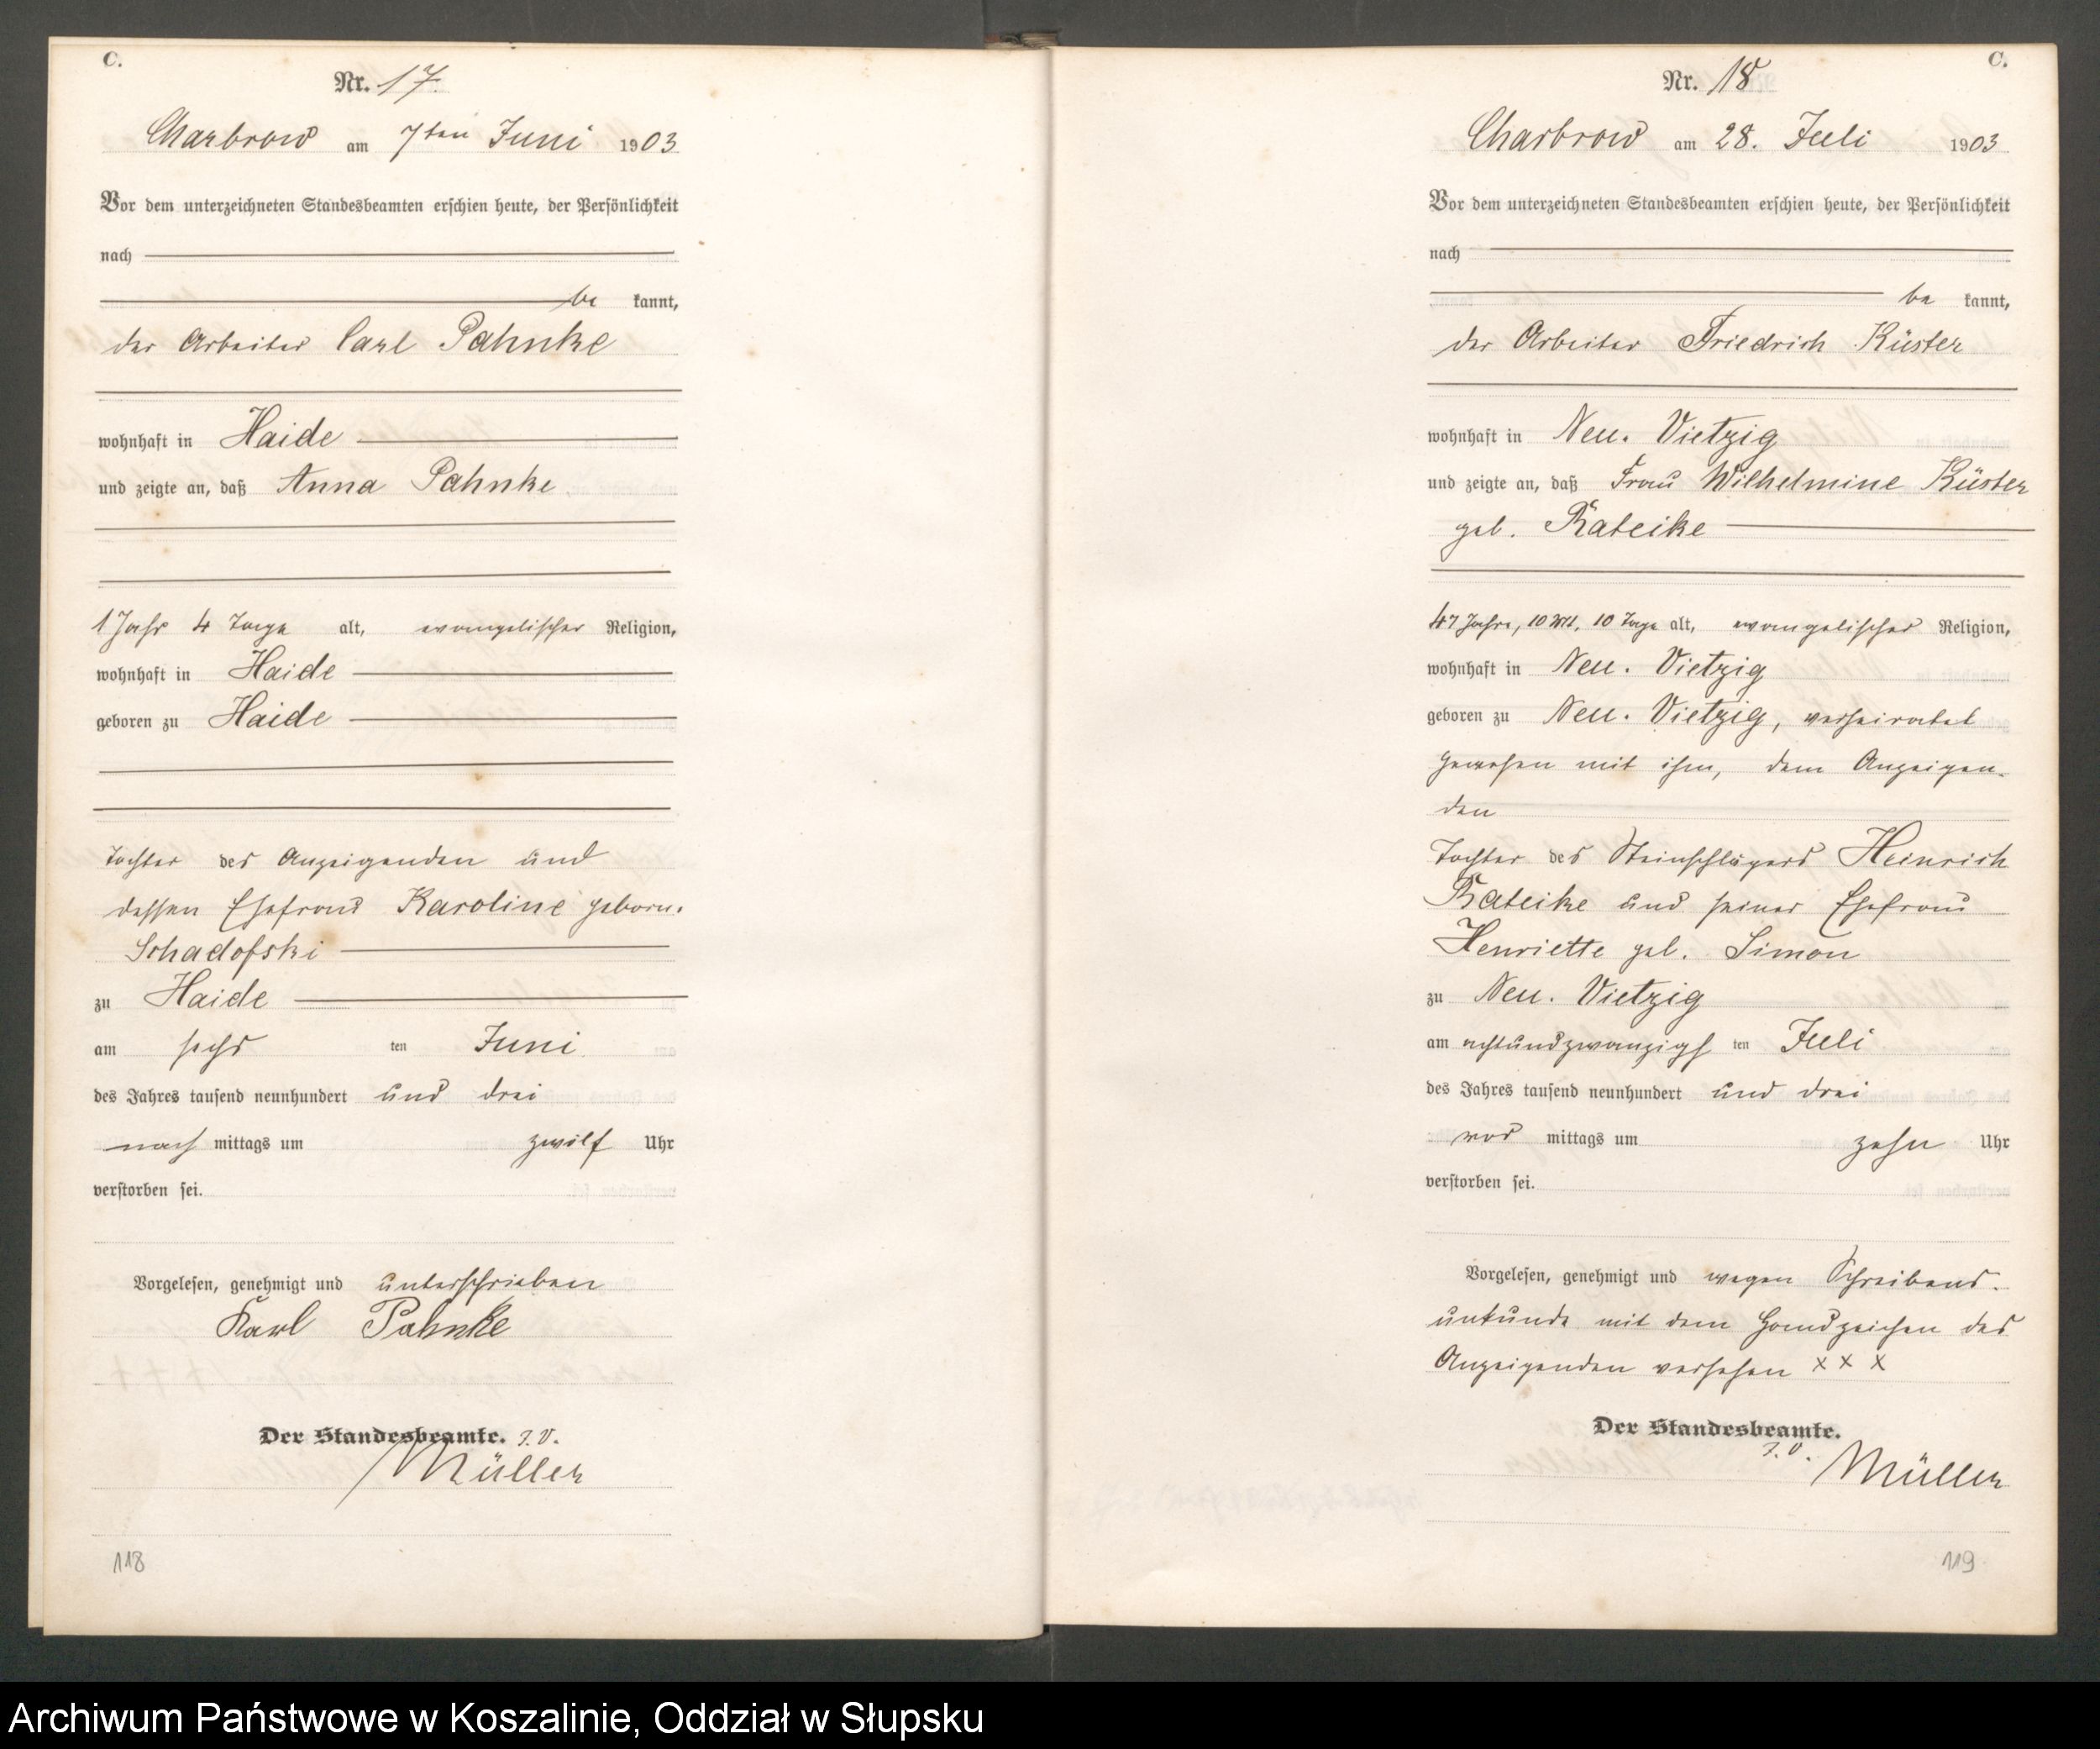 C.
Nr. 17
Charbrow am 7ten Juni 1903
Vor dem unterzeichneten Standesbeamten erschien heute, der Persönlichkeit
nach
be kannt,
der Arbeiter Carl Pahnke
wohnhaft in Haide
und zeigte an, daß Anna Pahnke
1 Jahr 4 Tage alt, evangelischer Religion,
wohnhaft in Haide
geboren zu Haide
Tochter des Anzeigenden und
dessen Ehefrau Karoline geborn.
Schadofski
zu Haide
am sechs ten Juni
des Jahres tausend neunhundert und drei
nach mittags um zwölf Uhr
verstorben sei.
Vorgelesen, genehmigt und unterschrieben
Karl Pahnke
Der Standesbeamte. I. V.
Müller
118
C.
Nr. 18
Charbrow am 28. Juli 1903
Vor dem unterzeichneten Standesbeamten erschien heute, der Persönlichkeit
nach
be kannt,
der Arbeiter Friedrich Küster
wohnhaft in Neu. Vietzig
und zeigte an, daß Frau Wilhelmine Küster
geb. Rateike
47 Jahre, 10 Mt, 10 Tage alt, evangelischer Religion,
wohnhaft in Neu. Vietzig
geboren zu Neu. Vietzig, verheiratet
gewesen mit ihm, dem Anzeigen-
den
Tochter des Steinschlägers Heinrich
Rateike und seiner Ehefrau
Henriette geb. Simon
zu Neu. Vietzig
am achtundzwanzigs ten Juli
des Jahres tausend neunhundert und drei
vor mittags um zehn Uhr
verstorben sei.
Vorgelesen, genehmigt und wegen Schreibens-
unkunde mit dem Handzeichen des
Anzeigenden versehen x x x
Der Standesbeamte.
I. V. Müller
119
Archiwum Państwowe w Koszalinie, Oddział w Słupsku